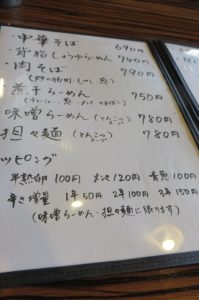 ・中華そば 690円
・背脂しょうゆらーめん 740円
・肉そば 790円
煮干らーめん 750円
味噌らーめん (とんこつ 780円
担々麺 (とんこつ 780円
ッピング
半熟卵 100円 メンマ 120円 青葱 100円
辛さ増量 1辛 50円 2辛 100円 3辛 150円
(味噌らーめん・担々麺に限ります)